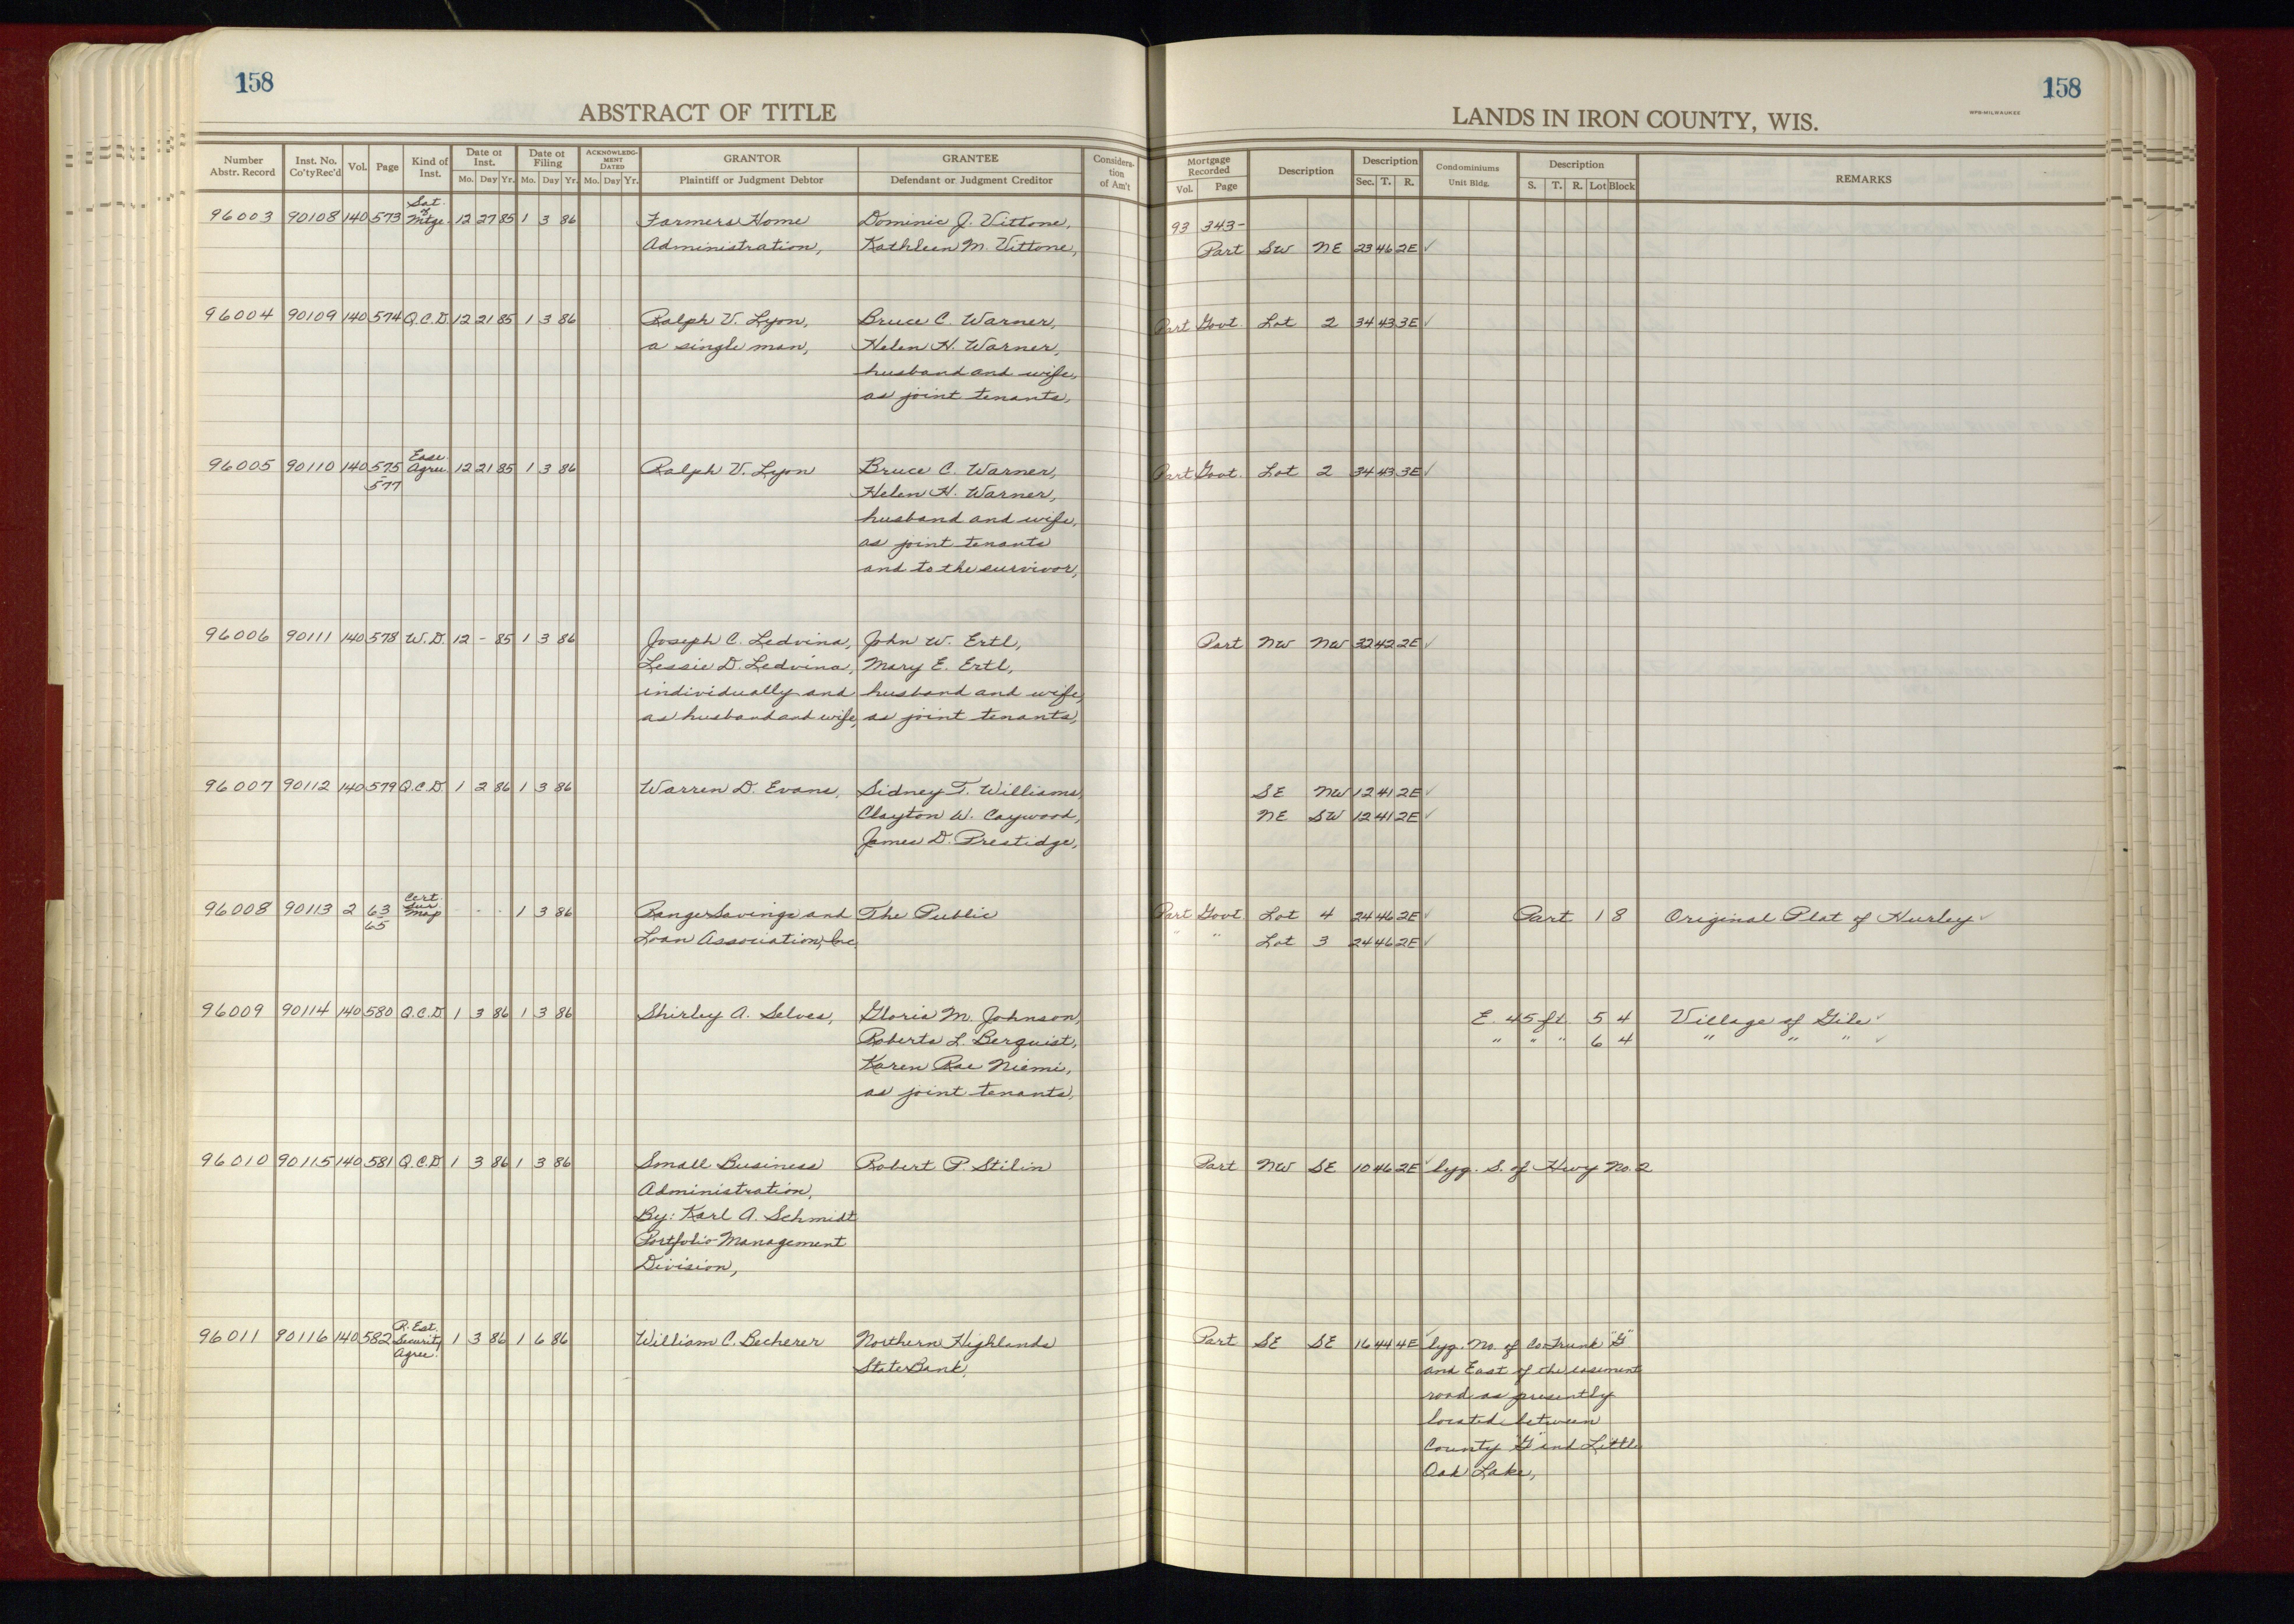 158
ABSTRACT OF TITLE
Number Abstr. Record Inst. No. Co'ty Rec'd Vol. Page Kind of Inst. Date of Inst. Mo. Day Yr. Date of Filing Mo. Day Yr. ACKNOWLEDGMENT DATED Mo. Day Yr. GRANTOR Plaintiff or Judgment Debtor GRANTEE Defendant or Judgment Creditor Consideration of Am't
96003 90108 140 573 Sat. of Mtge. 12 27 85 1 3 86 Farmers Home Dominic J. Vittone,
Administration, Kathleen M. Vittone,
96004 90109 140 574 Q.C.D. 12 21 85 1 3 86 Ralph V. Lyon, Bruce C. Warner,
a single man, Helen H. Warner,
husband and wife,
as joint tenants,
96005 90110 140 575-577 Ease. Agree. 12 21 85 1 3 86 Ralph V. Lyon Bruce C. Warner,
Helen H. Warner,
husband and wife,
as joint tenants
and to the survivor,
96006 90111 140 578 W.D. 12 - 85 1 3 86 Joseph C. Ledvina, John W. Ertl,
Lessie D. Ledvina, Mary E. Ertl,
individually and husband and wife,
as husband and wife, as joint tenants,
96007 90112 140 579 Q.C.D. 1 2 86 1 3 86 Warren D. Evans, Sidney T. Williams,
Clayton W. Caywood,
James D. Prestidge,
96008 90113 2 63-65 Cert. Sur. Map - - - 1 3 86 Range Savings and The Public
Loan Association, Inc.
96009 90114 140 580 Q.C.D. 1 3 86 1 3 86 Shirley A. Selves, Gloria M. Johnson,
Roberta L. Berquist,
Karen Rae Niemi,
as joint tenants,
96010 90115 140 581 Q.C.D. 1 3 86 1 3 86 Small Business Robert P. Stilin
Administration,
By: Karl A. Schmidt
Portfolio Management
Division,
96011 90116 140 582 R. Est. Security Agree. 1 3 86 1 6 86 William C. Becherer Northern Highlands
State Bank,
158
LANDS IN IRON COUNTY, WIS.
WPB-MILWAUKEE
Mortgage Recorded Vol. Page Description Description Sec. T. R. Condominiums Unit Bldg. Description S. T. R. Lot Block REMARKS
93 343-
Part SW NE 23 46 2E ✓
Part Govt. Lot 2 34 43 3E ✓
Part Govt. Lot 2 34 43 3E ✓
Part NW NW 32 42 2E ✓
SE NW 12 41 2E ✓
NE SW 12 41 2E ✓
Part Govt. Lot 4 24 46 2E ✓ Part 1 8 Original Plat of Hurley ✓
" " Lot 3 24 46 2E ✓
E. 45 ft. 5 4 Village of Gile ✓
" " " 6 4 " " " ✓
Part NW SE 10 46 2E ✓ lyg. S. of Hwy No. 2
Part SE SE 16 44 4E ✓ lyg. No. of Co. Trunk "G"
and East of the easement
road as presently
located between
County "G" and Little
Oak Lake,